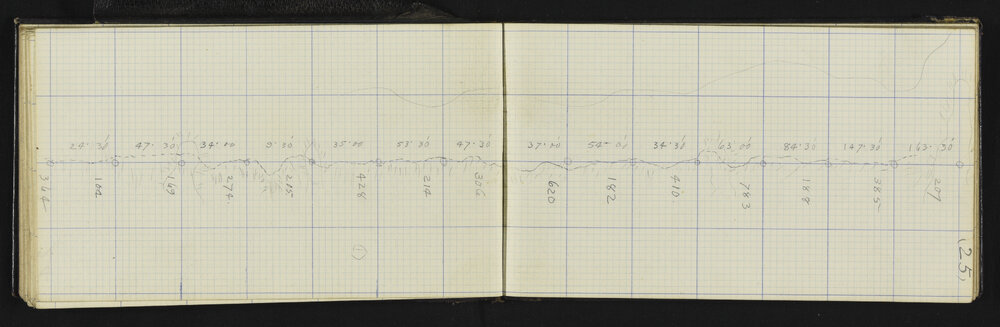 24° 30' 47° 30' 34° 00 9° 30 35° 00 53° 30' 47° 30' 37° 00 54° 00' 34° 30' 63° 00 84° 30 147° 30' 163° 30'
364 102 169 274 205 428 214 306 620 182 410 783 188 385 207
(1)
(25)